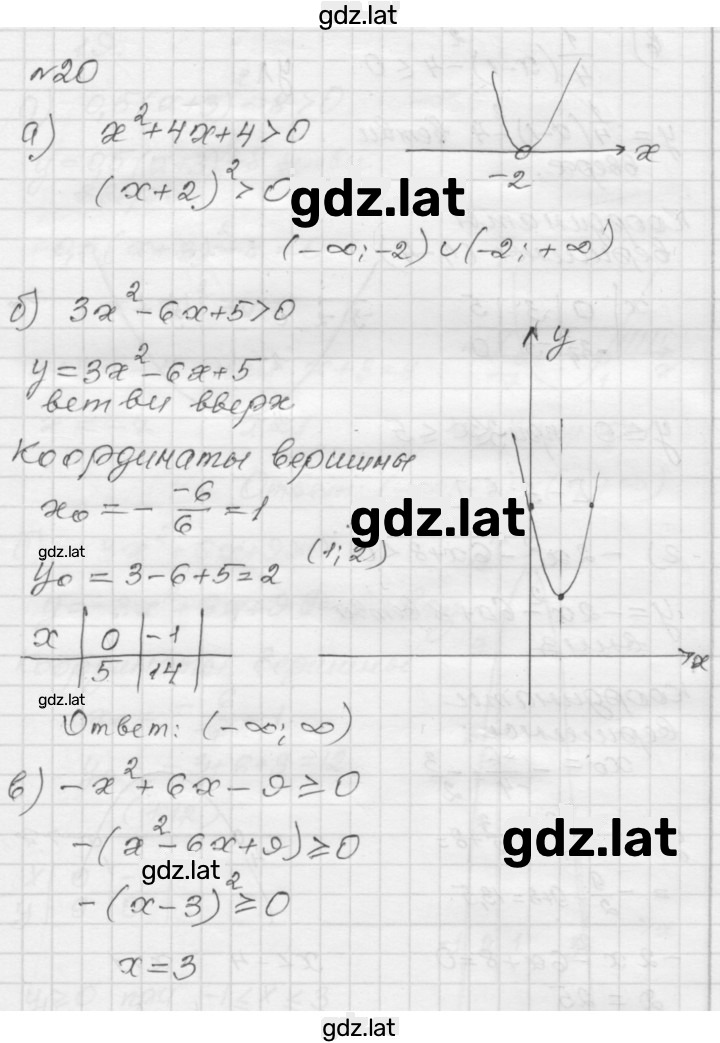 gdz.lat
№20
а) x²+4x+4>0
x
-2
(x+2)²>0
gdz.lat
(-∞;-2)∪(-2;+∞)
б) 3x²-6x+5>0
y
y=3x²-6x+5
ветви вверх
Координаты вершины
x₀=-\frac{-6}{6}=1
gdz.lat
gdz.lat
(1;2)
y₀=3-6+5=2
x | 0 | -1 |
| 5 | 14 |
x
gdz.lat
Ответ: (-∞;∞)
в) -x²+6x-9≥0
-(x²-6x+9)≥0
gdz.lat
gdz.lat
-(x-3)²≥0
x=3
gdz.lat